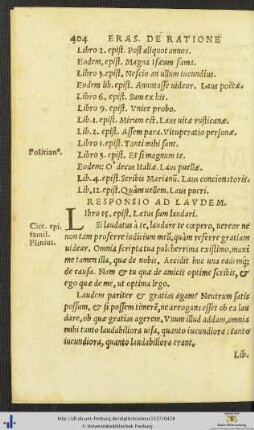 404 ERAS. DE RATIONE
Libro 2. epist. Post aliquot annos.
Eodem, epist. Magna Isæum fama.
Libro 3. epist. Nescio an ullum iucundius.
Eodem lib. epist. Annotasse uideor. Laus poëtæ.
Libro 6. epist. Sum ex his.
Libro 9. epist. Vnice probo.
Lib. 1. epist. Mirum est. Laus uitæ rusticanæ.
Lib. 2. epist. Assem para. Vituperatio personæ.
Politian⁹.
Libro 1. epist. Tanti mihi sunt.
Libro 3. epist. Et si magnum te.
Eodem: O decus Italia. Laus puellæ.
Lib. 4. epist. Scribis Marianū. Laus concionatoris.
Lib. 12. epist. Quàm uellem. Laus pueri.
RESPONSIO AD LAVDEM.
Libro 15. epist. Lætus sum laudari.
Cice. epi.
famil.
Plinius.
L Si laudatus à te, laudare te cœpero, uereor ne
non tam proferre iudicium meū, quàm referre gratiam
uidear. Omnia scripta tua pulcherrima existimo, maxi
me tamen illa, quæ de nobis. Accidit hoc una eademq́;
de causa. Nam & tu quæ de amicis optime scribis, &
ego quæ de me, ut optima lego.
Laudem pariter & gratias agam? Neutrum satis
possum, & si possem timerē, ne arrogans esset ob ea lau
dare, ob quæ gratias agerem. Vnum illud addam, omnia
mihi tanto laudabiliora uisa, quanto iucundiora: tanto
iucundiora, quanto laudabiliora erant.
Lib.
© Universitätsbibliothek Freiburg